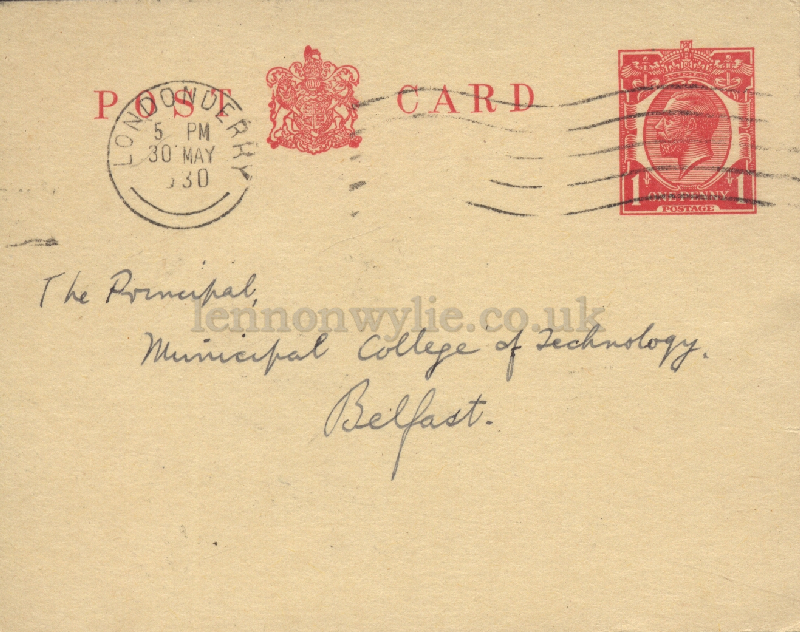 POST CARD
LONDONDERRY
5 PM
30 MAY
30
1 ONE PENNY 1
POSTAGE
The Principal,
lennonwylie.co.uk
Municipal College of Technology.
Belfast.